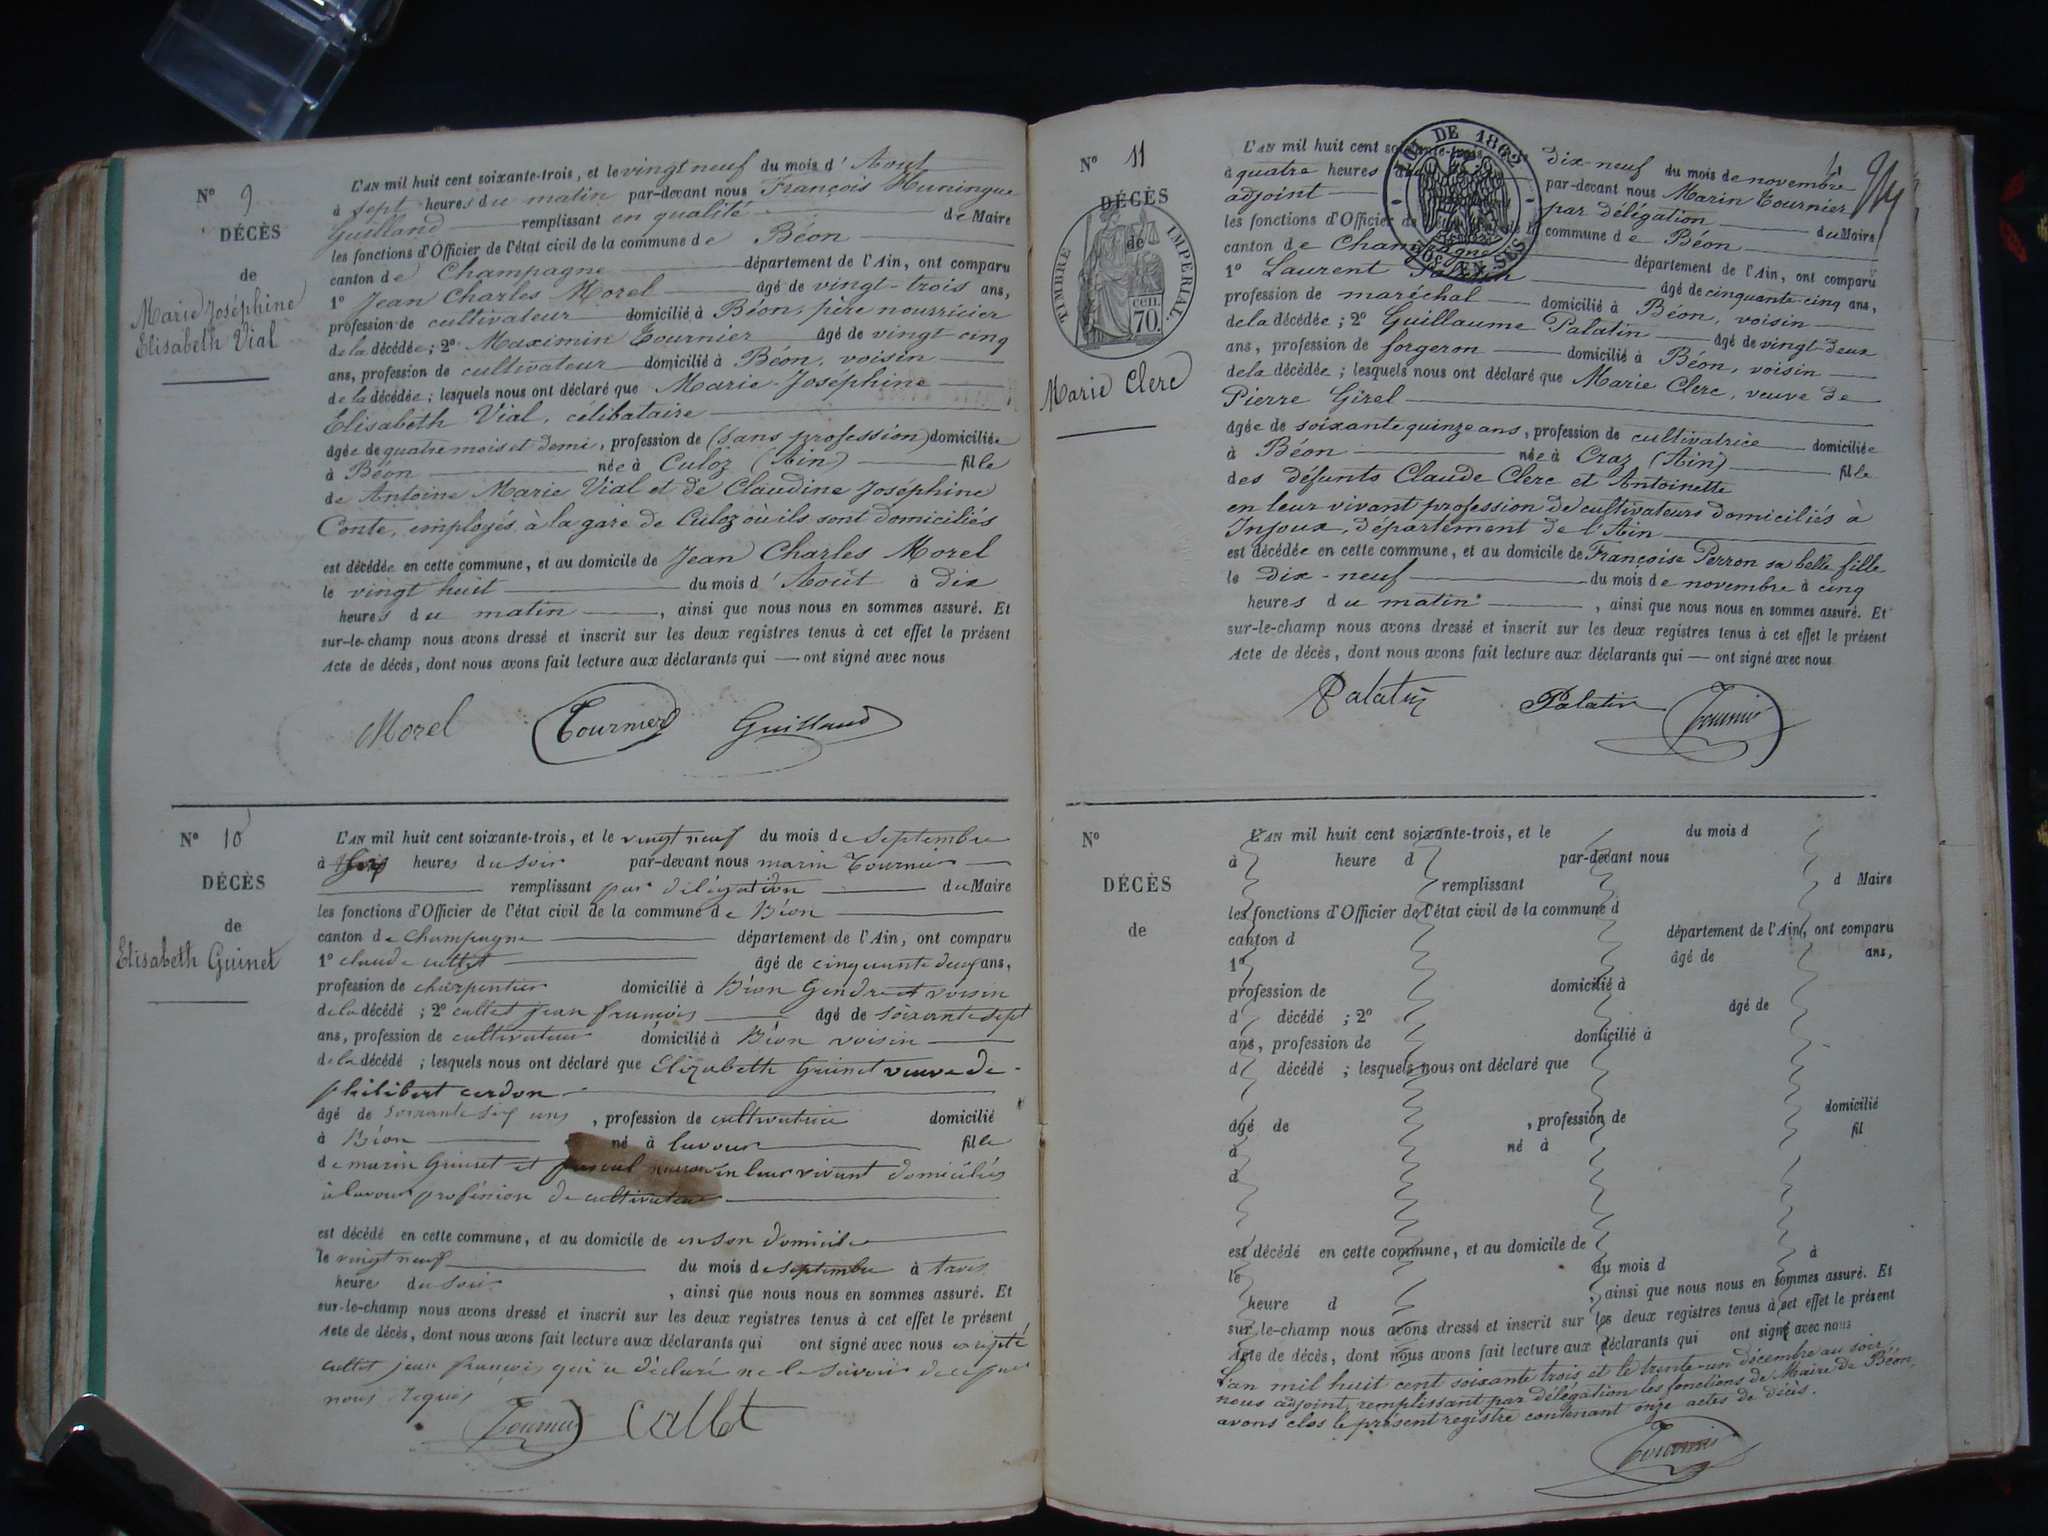 N° 9
DÉCÈS
de
Marie Joséphine
Elisabeth Vial
L'AN mil huit cent soixante-trois, et le vingt neuf du mois d'Aout
à sept heures du matin par-devant nous François Huningue
Guilland remplissant en qualité de Maire
les fonctions d'Officier de l'état civil de la commune de Béon
canton de Champagne département de l'Ain, ont comparu
1° Jean Charles Morel âgé de vingt-trois ans,
profession de cultivateur domicilié à Béon, père nourricier
de la décédée; 2° Maximin Tournier âgé de vingt cinq
ans, profession de cultivateur domicilié à Béon, voisin
de la décédée; lesquels nous ont déclaré que Marie-Joséphine
Elisabeth Vial, célibataire
âgée de quatre mois et demi, profession de (sans profession) domiciliée
à Béon née à Culoz (Ain) fille
de Antoine Marie Vial et de Claudine Joséphine
Conte, employés à la gare de Culoz où ils sont domiciliés
est décédée en cette commune, et au domicile de Jean Charles Morel
le vingt huit du mois d'Août à dix
heures du matin, ainsi que nous nous en sommes assuré. Et
sur-le-champ nous avons dressé et inscrit sur les deux registres tenus à cet effet le présent
Acte de décès, dont nous avons fait lecture aux déclarants qui — ont signé avec nous
Morel Tournier Guilland
N° 10
DÉCÈS
de
Elisabeth Guinet
L'AN mil huit cent soixante-trois, et le vingt neuf du mois de septembre
à heures du soir par-devant nous marin Tournier
remplissant par délégation du Maire
les fonctions d'Officier de l'état civil de la commune de Béon
canton de champagne département de l'Ain, ont comparu
1° claude cullet âgé de cinquante deux ans,
profession de charpentier domicilié à Béon Gendre et voisin
de la décédé; 2° cullet jean francois âgé de soixante sept
ans, profession de cultivateur domicilié à Béon voisin
de la décédé; lesquels nous ont déclaré que Elizabeth Guinet veuve de
philibert cerdon
âgé de soixante six ans, profession de cultivatrice domicilié
à Béon né à lavour fille
de marin Guinet et en leur vivant domiciliés
à lavour profession de cultivateur
est décédé en cette commune, et au domicile de en son domicile
le vingt neuf du mois de septembre à trois
heures du soir, ainsi que nous nous en sommes assuré. Et
sur-le-champ nous avons dressé et inscrit sur les deux registres tenus à cet effet le présent
Acte de décès, dont nous avons fait lecture aux déclarants qui ont signé avec nous
cullet jean francois qui a déclaré ne le savoir de ce par
nous requis
Tournier Cullet
N° 11
DÉCÈS
de
TIMBRE IMPÉRIAL
70
Marie Clerc
DE 1862
EN SUS
L'AN mil huit cent soixante-trois dix-neuf du mois de novembre
à quatre heures par-devant nous Marin Tournier
adjoint par délégation du Maire
les fonctions d'Officier de commune de Béon
canton de Champagne département de l'Ain, ont comparu
1° Laurent Palatin âgé de cinquante-cinq ans,
profession de maréchal domicilié à Béon, voisin
de la décédée; 2° Guillaume Palatin âgé de vingt-deux
ans, profession de forgeron domicilié à Béon, voisin
de la décédée; lesquels nous ont déclaré que Marie Clerc, veuve de
Pierre Girel
âgée de soixante quinze ans, profession de cultivatrice domiciliée
à Béon née à Craz (Ain) fille
des défunts Claude Clerc et Antoinette
en leur vivant profession de cultivateurs domiciliés à
Injoux, département de l'Ain
est décédée en cette commune, et au domicile de Françoise Perron sa belle fille
le dix-neuf du mois de novembre à cinq
heures du matin, ainsi que nous nous en sommes assuré. Et
sur-le-champ nous avons dressé et inscrit sur les deux registres tenus à cet effet le présent
Acte de décès, dont nous avons fait lecture aux déclarants qui — ont signé avec nous
Palatin Palatin Tournier
N°
DÉCÈS
de
L'AN mil huit cent soixante-trois, et le du mois d
à heure d par-devant nous
remplissant d Maire
les fonctions d'Officier de l'état civil de la commune d
canton d département de l'Ain, ont comparu
1° âgé de ans,
profession de domicilié à
d décédé ; 2° âgé de
ans, profession de domicilié à
d décédé ; lesquels nous ont déclaré que
âgé de , profession de domicilié
à né à fil
d
est décédé en cette commune, et au domicile de
le du mois d à
heure d , ainsi que nous nous en sommes assuré. Et
sur-le-champ nous avons dressé et inscrit sur les deux registres tenus à cet effet le présent
Acte de décès, dont nous avons fait lecture aux déclarants qui ont signé avec nous
L'an mil huit cent soixante trois et le trente-un décembre au soir
nous adjoint, remplissant par délégation les fonctions de Maire de Béon,
avons clos le présent registre contenant onze actes de décès.
Tournier